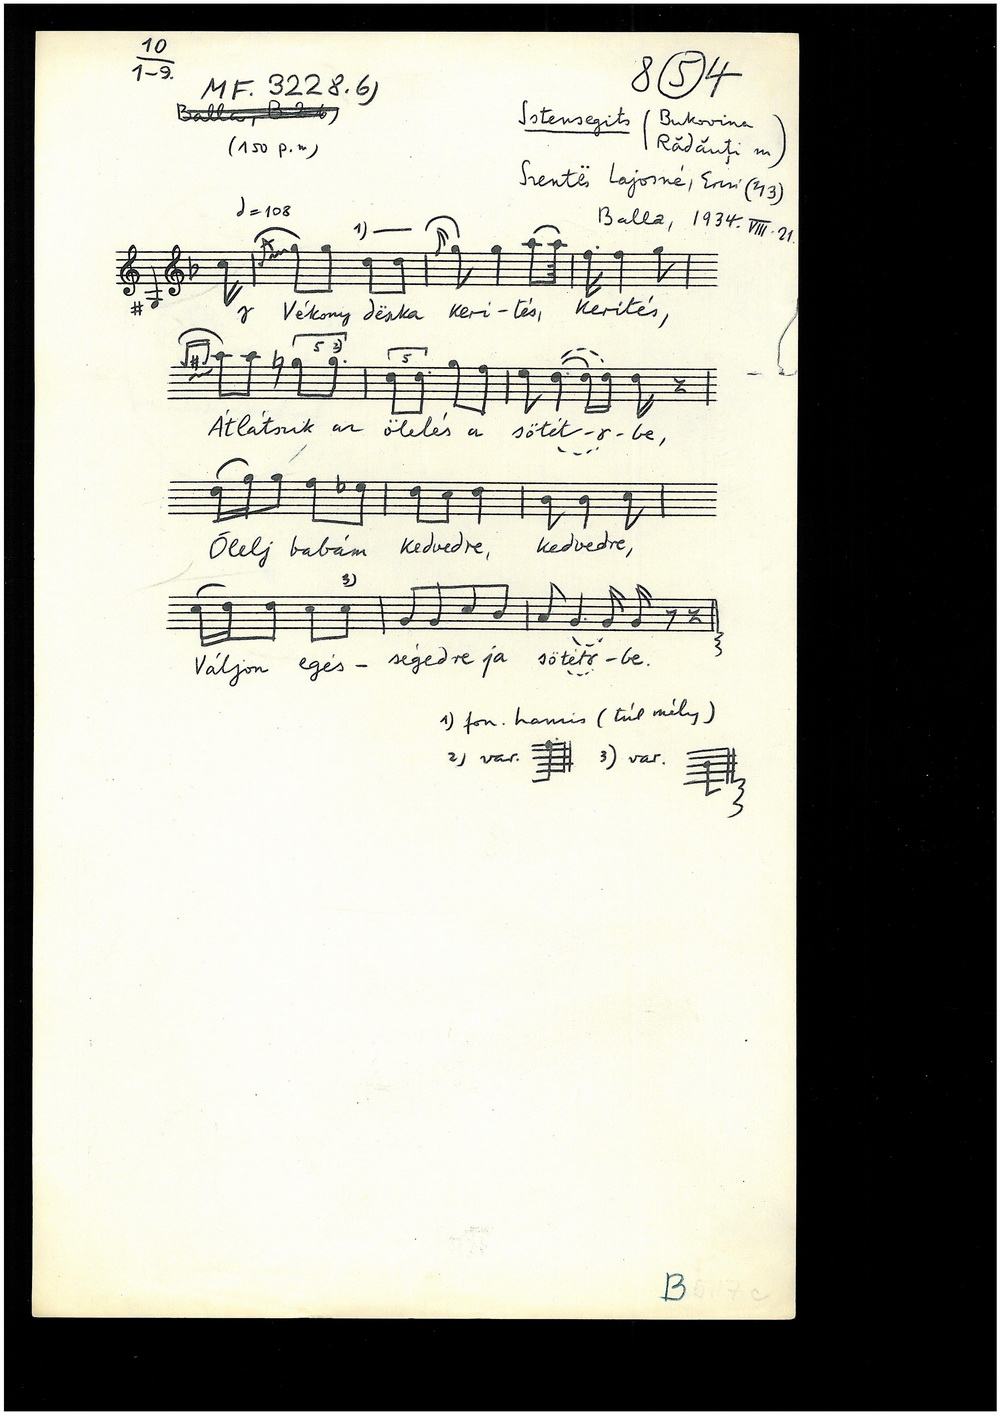 10
1-9.
MF. 3228.b)
Balla, B 2 b)
(150 p.m)
8 5 4
Istensegits (Bukovina
Rădăuţi m)
Szentës Lajosné, Erzsi (43)
Balla, 1934. VIII. 21.
♩=108
1)
Vékony dëszka keri-tés, kerítés,
5 2)
5
Átlátszik az ölelés a sötét-ɤ-be,
Ölelj babám kedvedre, kedvedre,
3)
Váljon egés-ségedre ja sötétɤ-be.
1) fon. hamis (túl mély)
2) var. 3) var.
B